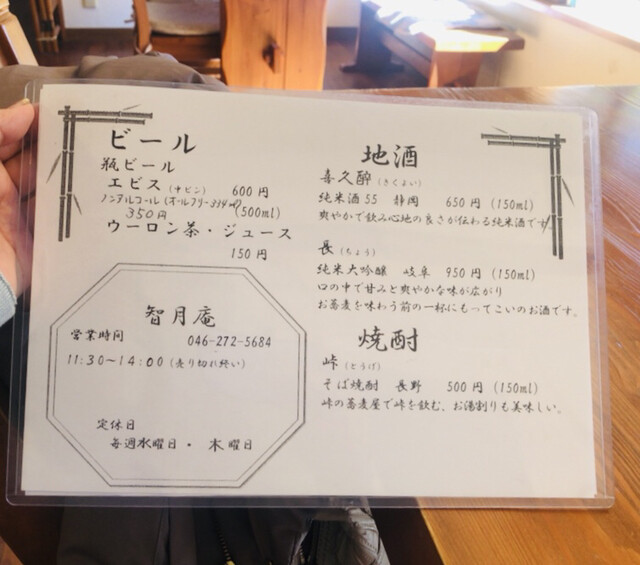 ビール
瓶ビール
エビス（中ビン） 600円
(500ml)
ノンアルコール（オールフリー334ml）
350円
ウーロン茶・ジュース
150円
智月庵
営業時間 046-272-5684
11:30～14:00（売り切れ終い）
定休日
毎週水曜日・木曜日
地酒
喜久酔（きくよい）
純米酒55 静岡 650円（150ml）
爽やかで飲み心地の良さが伝わる純米酒です。
長（ちょう）
純米大吟醸 岐阜 950円（150ml）
口の中で甘みと爽やかな味が広がり
お蕎麦を味わう前の一杯にもってこいのお酒です。
焼酎
峠（とうげ）
そば焼酎 長野 500円（150ml）
峠の蕎麦屋で峠を飲む、お湯割りも美味しい。